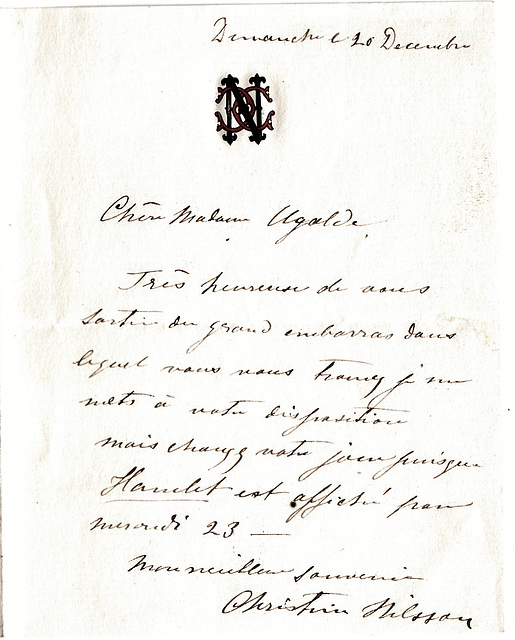 Dimanche le 20 Decembre
CN
Chère Madame Ugalde,
Très heureuse de vous
sortir du grand embarras dans
lequel vous vous trouvez je me
mets à votre disposition
mais changez votre jour puisque
Hamlet est affiché pour
mercredi 23 —
Mon meilleur souvenir
Christine Nilsson